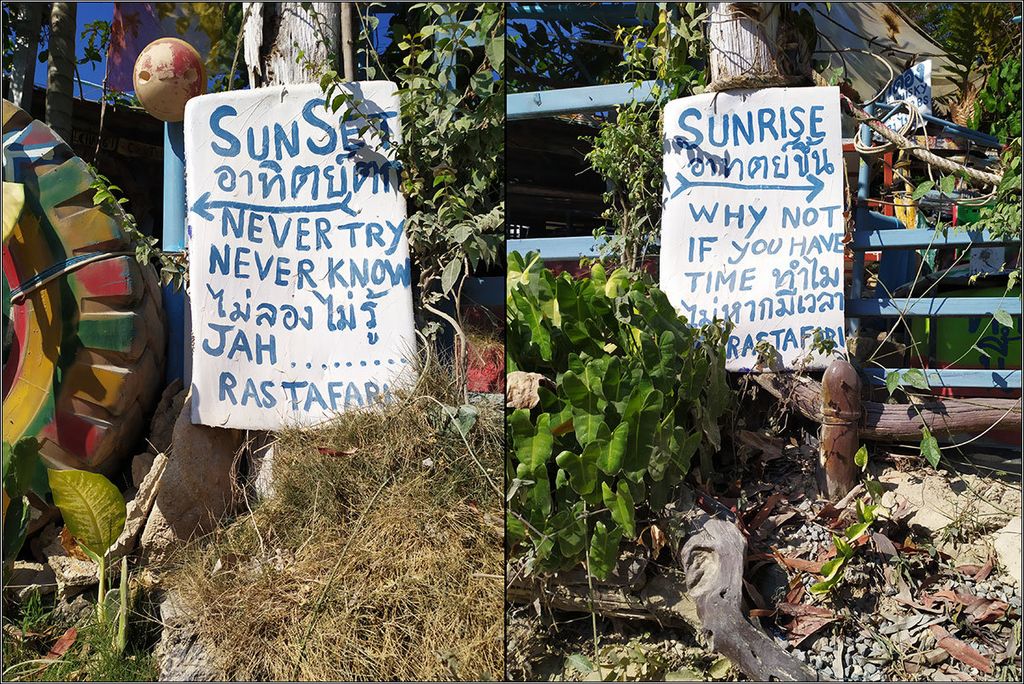 SUNSET
อาทิตย์ตก
NEVER TRY
NEVER KNOW
ไม่ลอง ไม่รู้
JAH ........
RASTAFARI
SUNRISE
อาทิตย์ขึ้น
WHY NOT
IF YOU HAVE
TIME ทำไม
ไม่หากมีเวลา
RASTAFARI